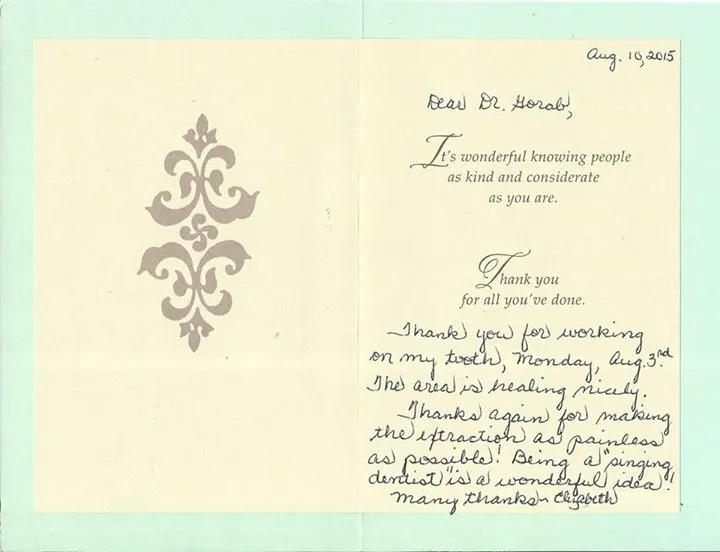 Aug. 10, 2015
Dear Dr. Gorab,
It's wonderful knowing people
as kind and considerate
as you are.
Thank you
for all you've done.
Thank you for working
on my tooth, Monday, Aug. 3rd.
The area is healing nicely.
Thanks again for making
the extraction as painless
as possible! Being a "singing
dentist" is a wonderful idea!
Many thanks ~ Elizabeth